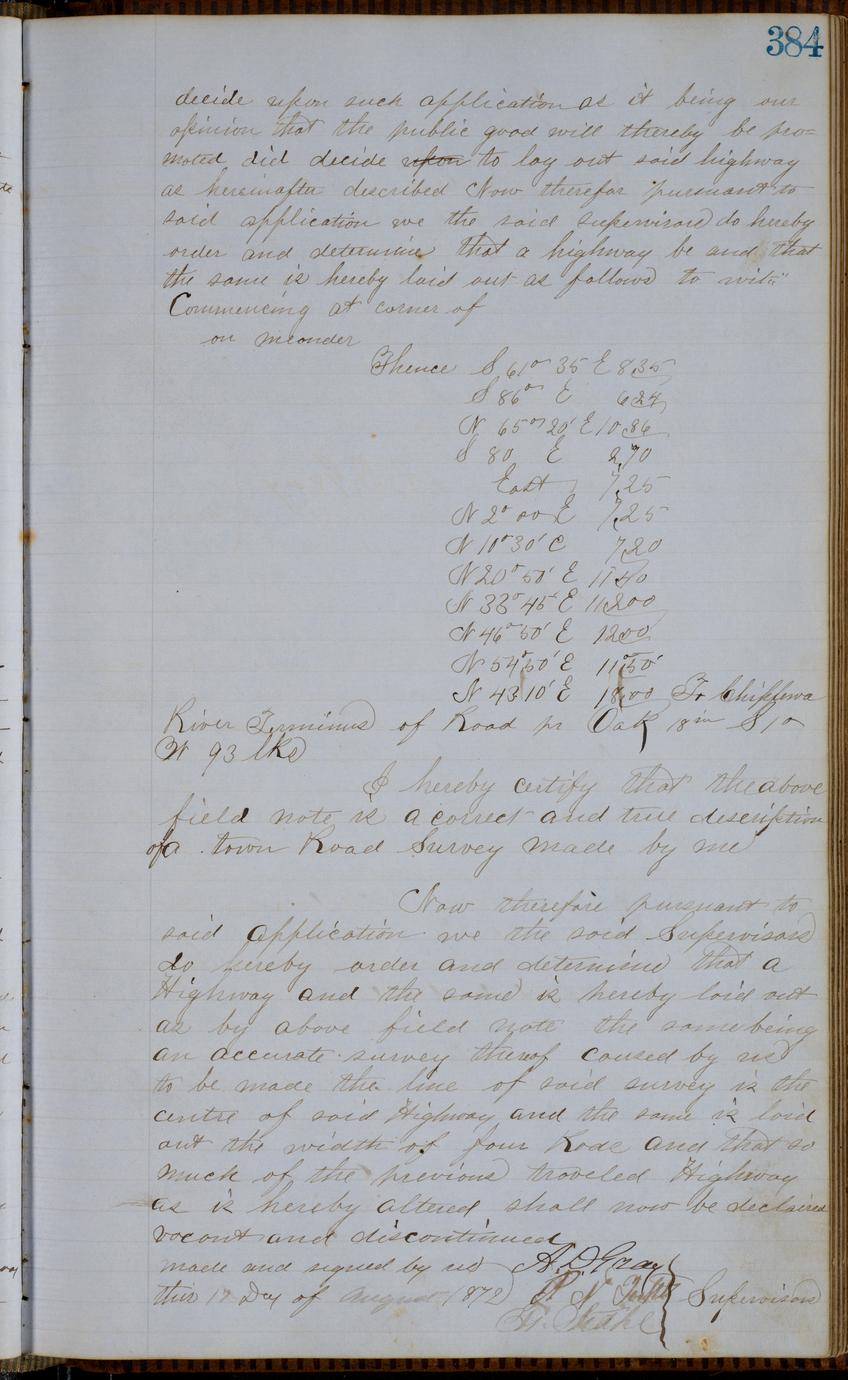 384
decide upon such application as it being our
opinion that the public good will thereby be pro=
moted did decide upon to lay out said highway
as hereinafter described Now therefor pursuant to
said application we the said supervisors do hereby
order and determine that a highway be and that
the same is hereby laid out as follows to wit:
Commencing at corner of
on meander
Thence S 61° 35 E 8,35
S 86° E 6 24
N 65° 20' E 10 86
S 80 E 2,70
East 7,25
N 2° 00 E 7,25
N 10° 30' E 7,20
N 20° 50' E 11 40
N 33° 45' E 11,200
N 46° 50' E 12 00
N 54° 50' E 11 50
N 43 10' E 18,00 To Chippewa
River Terminus of Road pr Oak 18 in S 1°
W 93 lks
I hereby certify that the above
field note is a correct and true description
of a town Road Survey made by me
Now therefore pursuant to
said application we the said Supervisors
do hereby order and determine that a
Highway and the same is hereby laid out
as by above field note the same being
an accurate survey thereof caused by us
to be made the line of said survey is the
centre of said Highway and the same is laid
out the width of four Rods and that so
much of the previous traveled Highway
as is hereby altered shall now be declaired
vacant and discontinued
made and signed by us A. D. Gray
this 17 Day of August 1872 Supervisors